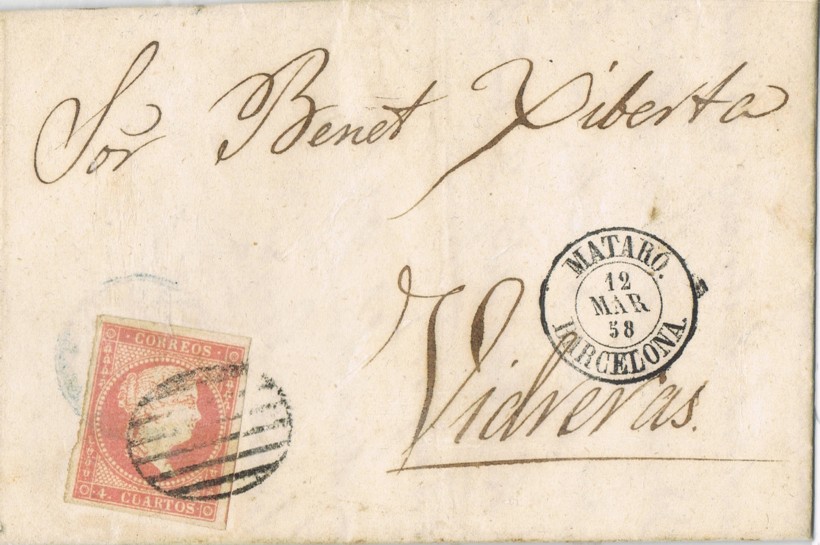 Sor Benet Xiberta
MATARO.
12
MAR
58
BARCELONA.
Vidreras.
CORREOS
4. CUARTOS